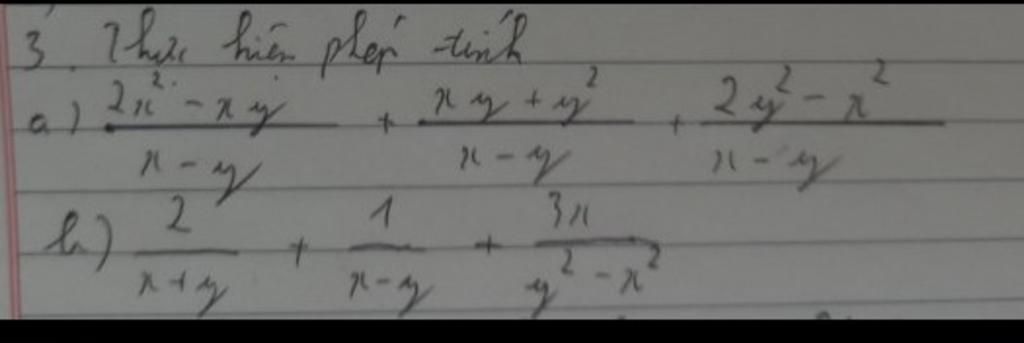 3. Thực hiện phép tính
a) (2x² - xy)/(x - y) + (xy + y²)/(x - y) + (2y² - x²)/(x - y)
b) 2/(x + y) + 1/(x - y) + 3x/(y² - x²)